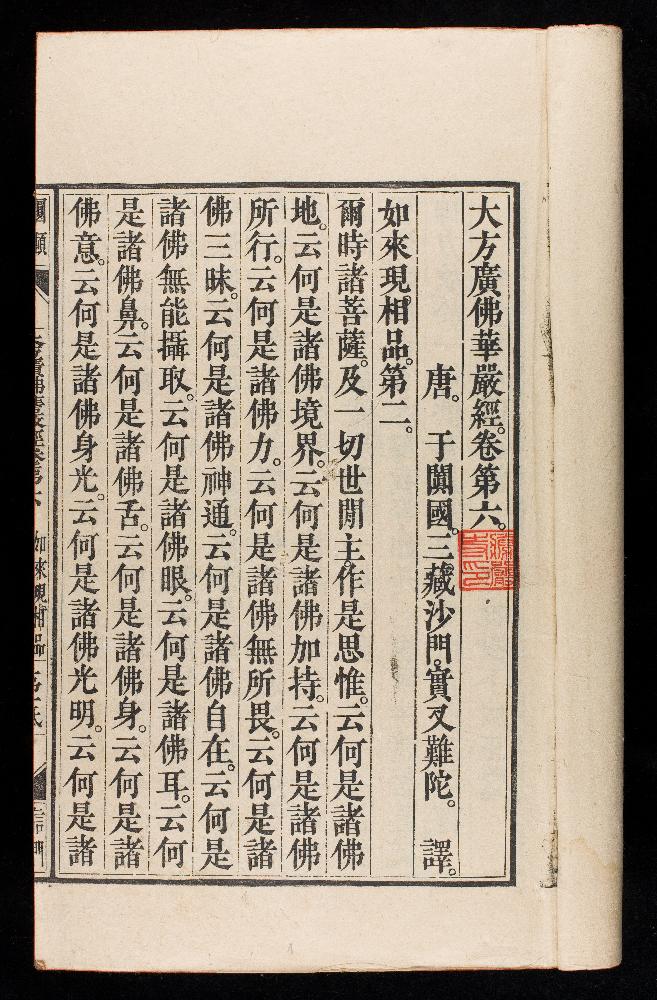 大方廣佛華嚴經。卷第六。
唐。于闐國。三藏沙門。實叉難陀。譯。
如來現。相品。第二。
爾時諸菩薩。及一切世閒主。作是思惟。云何是諸佛
地。云何是諸佛境界。云何是諸佛加持。云何是諸佛
所行。云何是諸佛力。云何是諸佛無所畏。云何是諸
佛三昧。云何是諸佛神通。云何是諸佛自在。云何是
諸佛無能攝取。云何是諸佛眼。云何是諸佛耳。云何
是諸佛鼻。云何是諸佛舌。云何是諸佛身。云何是諸
佛意。云何是諸佛身光。云何是諸佛光明。云何是諸
如來現相品